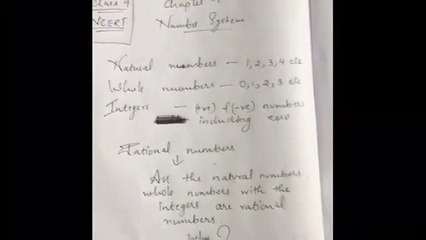 Class 9
NCERT
Chapter
Number System
Natural numbers — 1, 2, 3, 4 etc
Whole numbers — 0, 1, 2, 3 etc
Integers — (+ve) & (-ve) numbers
including zero
Rational numbers
↓
All the natural numbers
whole numbers with the
integers are rational
numbers.
why?